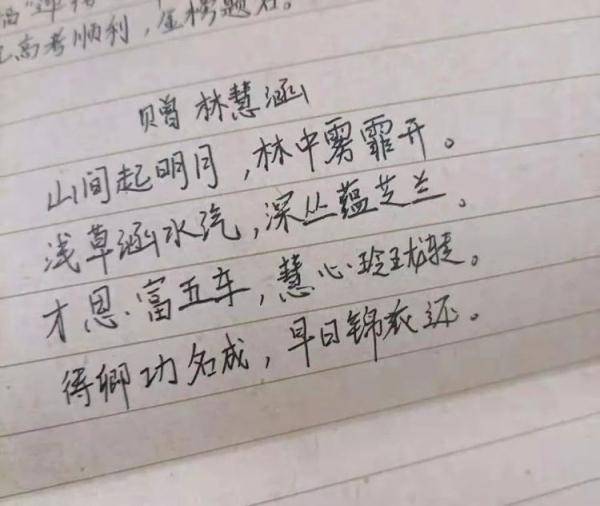 高考顺利，金榜题名。
赠 林慧涵
山间起明月，林中雾霏开。
浅草涵水汽，深丛蕴芝兰。
才思富五车，慧心玲珑转。
待卿功名成，早日锦衣还。